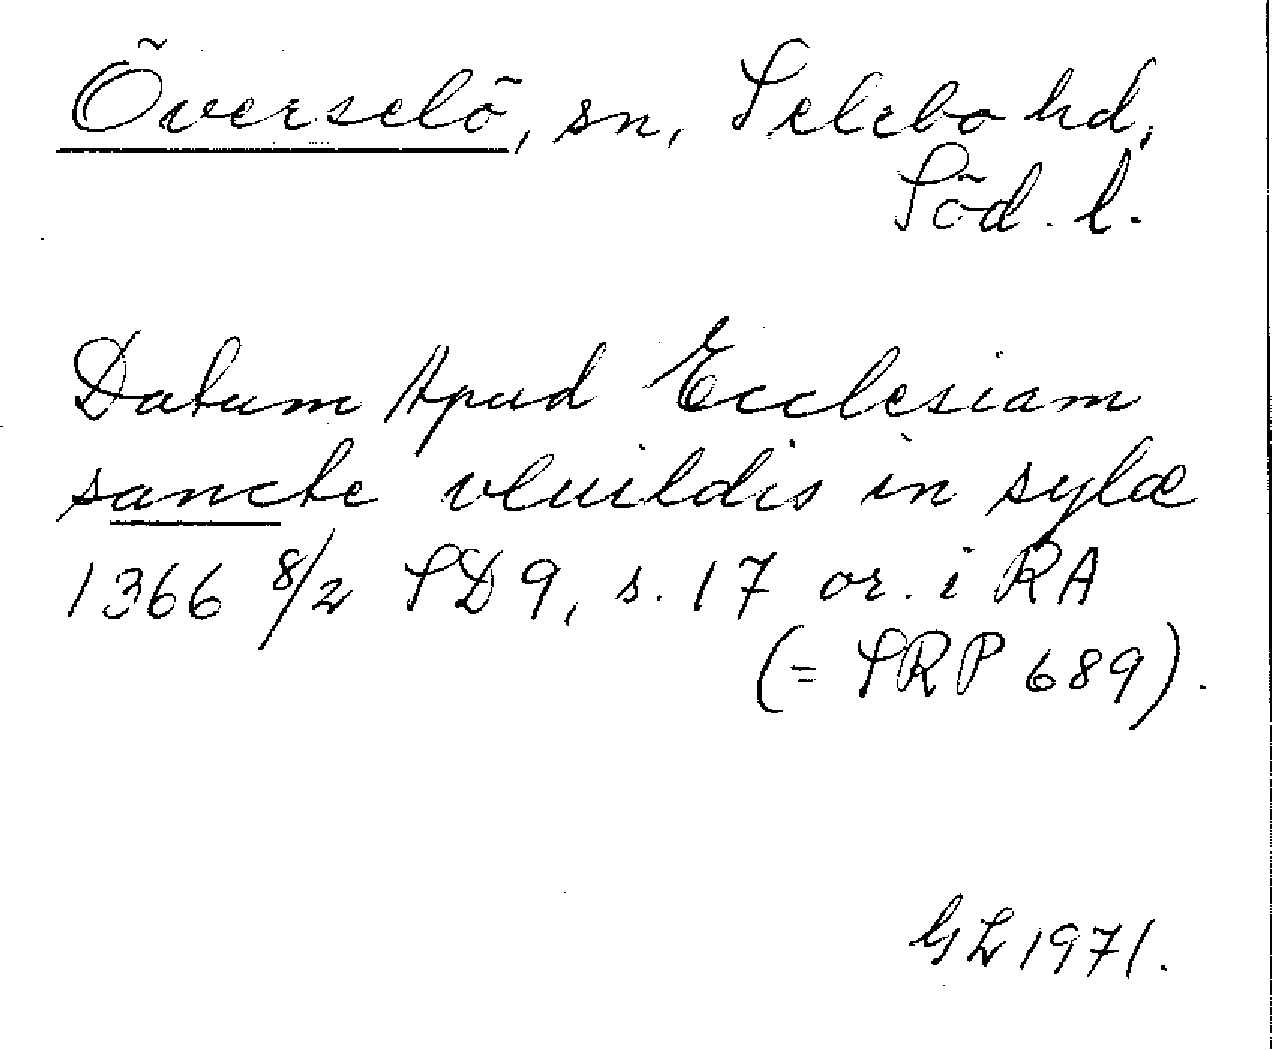 Överselö, sn, Selebo hd,
Söd. l.
Datum Apud Ecclesiam
sancte vluildis in sylæ
1366 8/2 SD 9, s. 17 or. i RA
(= SRP 689).
GL 1971.